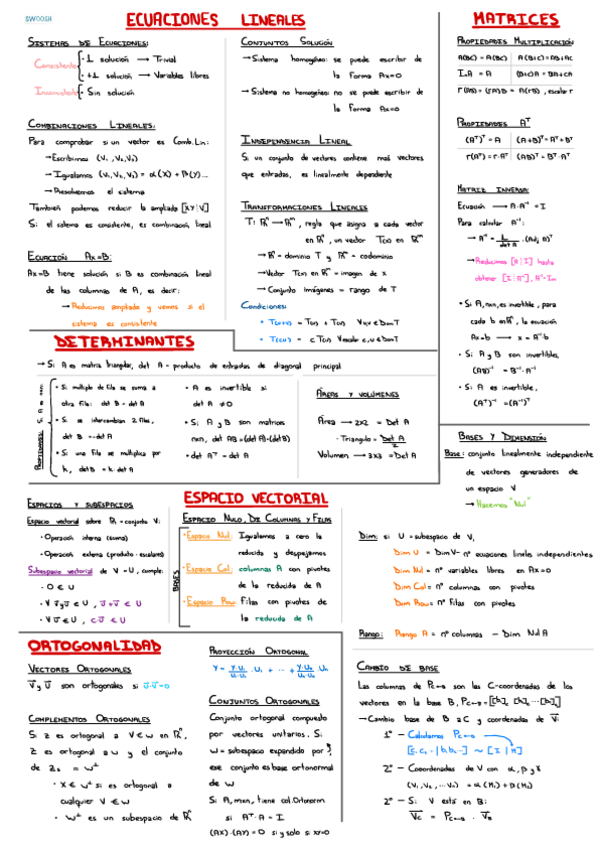 SWOOSH
ECUACIONES LINEALES
SISTEMAS DE ECUACIONES:
Consistente
· 1 solución → Trivial
· +1 solución → Variables libres
· Sin solución
COMBINACIONES LINEALES:
Para comprobar si un vector es Comb. Lin:
→ Escribimos (V₁, V₂, V₃)
→ Igualamos (V₁, V₂, V₃) = α(X) + β(Y)...
→ Resolvemos el sistema
También podemos reducir la ampliada [X Y | V]
Si el sistema es consistente, es combinación lineal
ECUACIÓN AX=B:
Ax=B tiene solución si B es combinación lineal
de las columnas de A, es decir:
→ Reducimos ampliada y vemos si el
sistema es consistente
CONJUNTOS SOLUCIÓN
→ Sistema homogéneo: se puede escribir de
la forma Ax=0
→ Sistema no homogéneo: no se puede escribir de
la forma Ax=0
INDEPENDENCIA LINEAL
Si un conjunto de vectores contiene más vectores
que entradas, es linealmente dependiente
TRANSFORMACIONES LINEALES
T: ℝⁿ → ℝᵐ, regla que asigna a cada vector
en ℝⁿ, un vector T(x) en ℝᵐ
→ ℝⁿ = dominio T y ℝᵐ = codominio
→ Vector T(x) en ℝᵐ = imagen de x
→ Conjunto imágenes = rango de T
Condiciones:
· T(u+v) = T(u) + T(v) ∀u,v ∈ Dom T
· T(cu) = c T(u) ∀escalar c, u ∈ Dom T
MATRICES
PROPIEDADES MULTIPLICACIÓN
A(BC) = (AB)C A(B+C) = AB+AC
I·A = A (B+C)A = BA+CA
r(AB) = (rA)B = A(rB), escalar r
PROPIEDADES Aᵀ
(Aᵀ)ᵀ = A (A+B)ᵀ = Aᵀ+Bᵀ
r(A)ᵀ = r·Aᵀ (AB)ᵀ = Bᵀ·Aᵀ
MATRIZ INVERSA:
Ecuación → A·A⁻¹ = I
Para calcular A⁻¹:
→ A⁻¹ = 1/det A · (Adj A)ᵀ
→ Reducimos [A | I] hasta
obtener [I | A⁻¹]
· Si A, nxn, es invertible, para
cada b en ℝⁿ, la ecuación
Ax=b → x = A⁻¹·b
· Si A y B son invertibles,
(AB)⁻¹ = B⁻¹·A⁻¹
· Si A es invertible,
(Aᵀ)⁻¹ = (A⁻¹)ᵀ
DETERMINANTES
→ Si A es matriz triangular, det A = producto de entradas de diagonal principal
· Si múltiplo de fila se suma a
otra fila: det B = det A
· Si se intercambian 2 filas,
det B = -det A
· Si una fila se multiplica por
k, det B = k·det A
· A es invertible si
det A ≠ 0
· Si A y B son matrices
nxn, det AB = (det A)·(det B)
· det Aᵀ = det A
ÁREAS Y VOLÚMENES
Área → 2x2 = Det A
· Triangulo = Det A / 2
Volumen → 3x3 = Det A
BASES Y DIMENSIÓN
Base: conjunto linealmente independiente
de vectores generadores de
un espacio V
→ Hacemos "Nul"
ESPACIO VECTORIAL
ESPACIOS Y SUBESPACIOS
Espacio vectorial sobre ℝ = conjunto V:
· Operación interna (suma)
· Operación externa (producto · escalares)
Subespacio vectorial de V = U, cumple:
· 0 ∈ U
ESPACIO NULO, DE COLUMNAS Y FILAS
BASES
· Espacio Nul: Igualamos a cero la
reducida y despejamos
· Espacio Col: columnas A con pivotes
de la reducida de A
· Espacio Row: filas con pivotes de
la reducida de A
Dim: si U = subespacio de V,
Dim U = Dim V - nº ecuaciones lineales independientes
Dim Nul = nº variables libres en Ax=0
Dim Col = nº columnas con pivotes
Dim Row = nº filas con pivotes
Rango: Rango A = nº columnas - Dim Nul A
ORTOGONALIDAD
VECTORES ORTOGONALES
u y v son ortogonales si u·v=0
COMPLEMENTOS ORTOGONALES
Si z es ortogonal a ∀ ∈ W en ℝⁿ,
z es ortogonal a W y el conjunto
de zs = W⊥
· X ∈ W⊥ si es ortogonal a
cualquier V ∈ W
· W⊥ es un subespacio de ℝⁿ
PROYECCIÓN ORTOGONAL
CONJUNTOS ORTOGONALES
Conjunto ortogonal compuesto
por vectores unitarios. Si
W = subespacio expandido por
ese conjunto es base ortonormal
de W
Si A, mxn, tiene col. Ortonorm
si Aᵀ·A = I
CAMBIO DE BASE
Las columnas de P son las C-coordenadas de los
vectores en la base B,
→ Cambio base de B a C y coordenadas de V
1º - Calculamos P
2º - Coordenadas de V con α, β y γ
2º - Si V está en B: